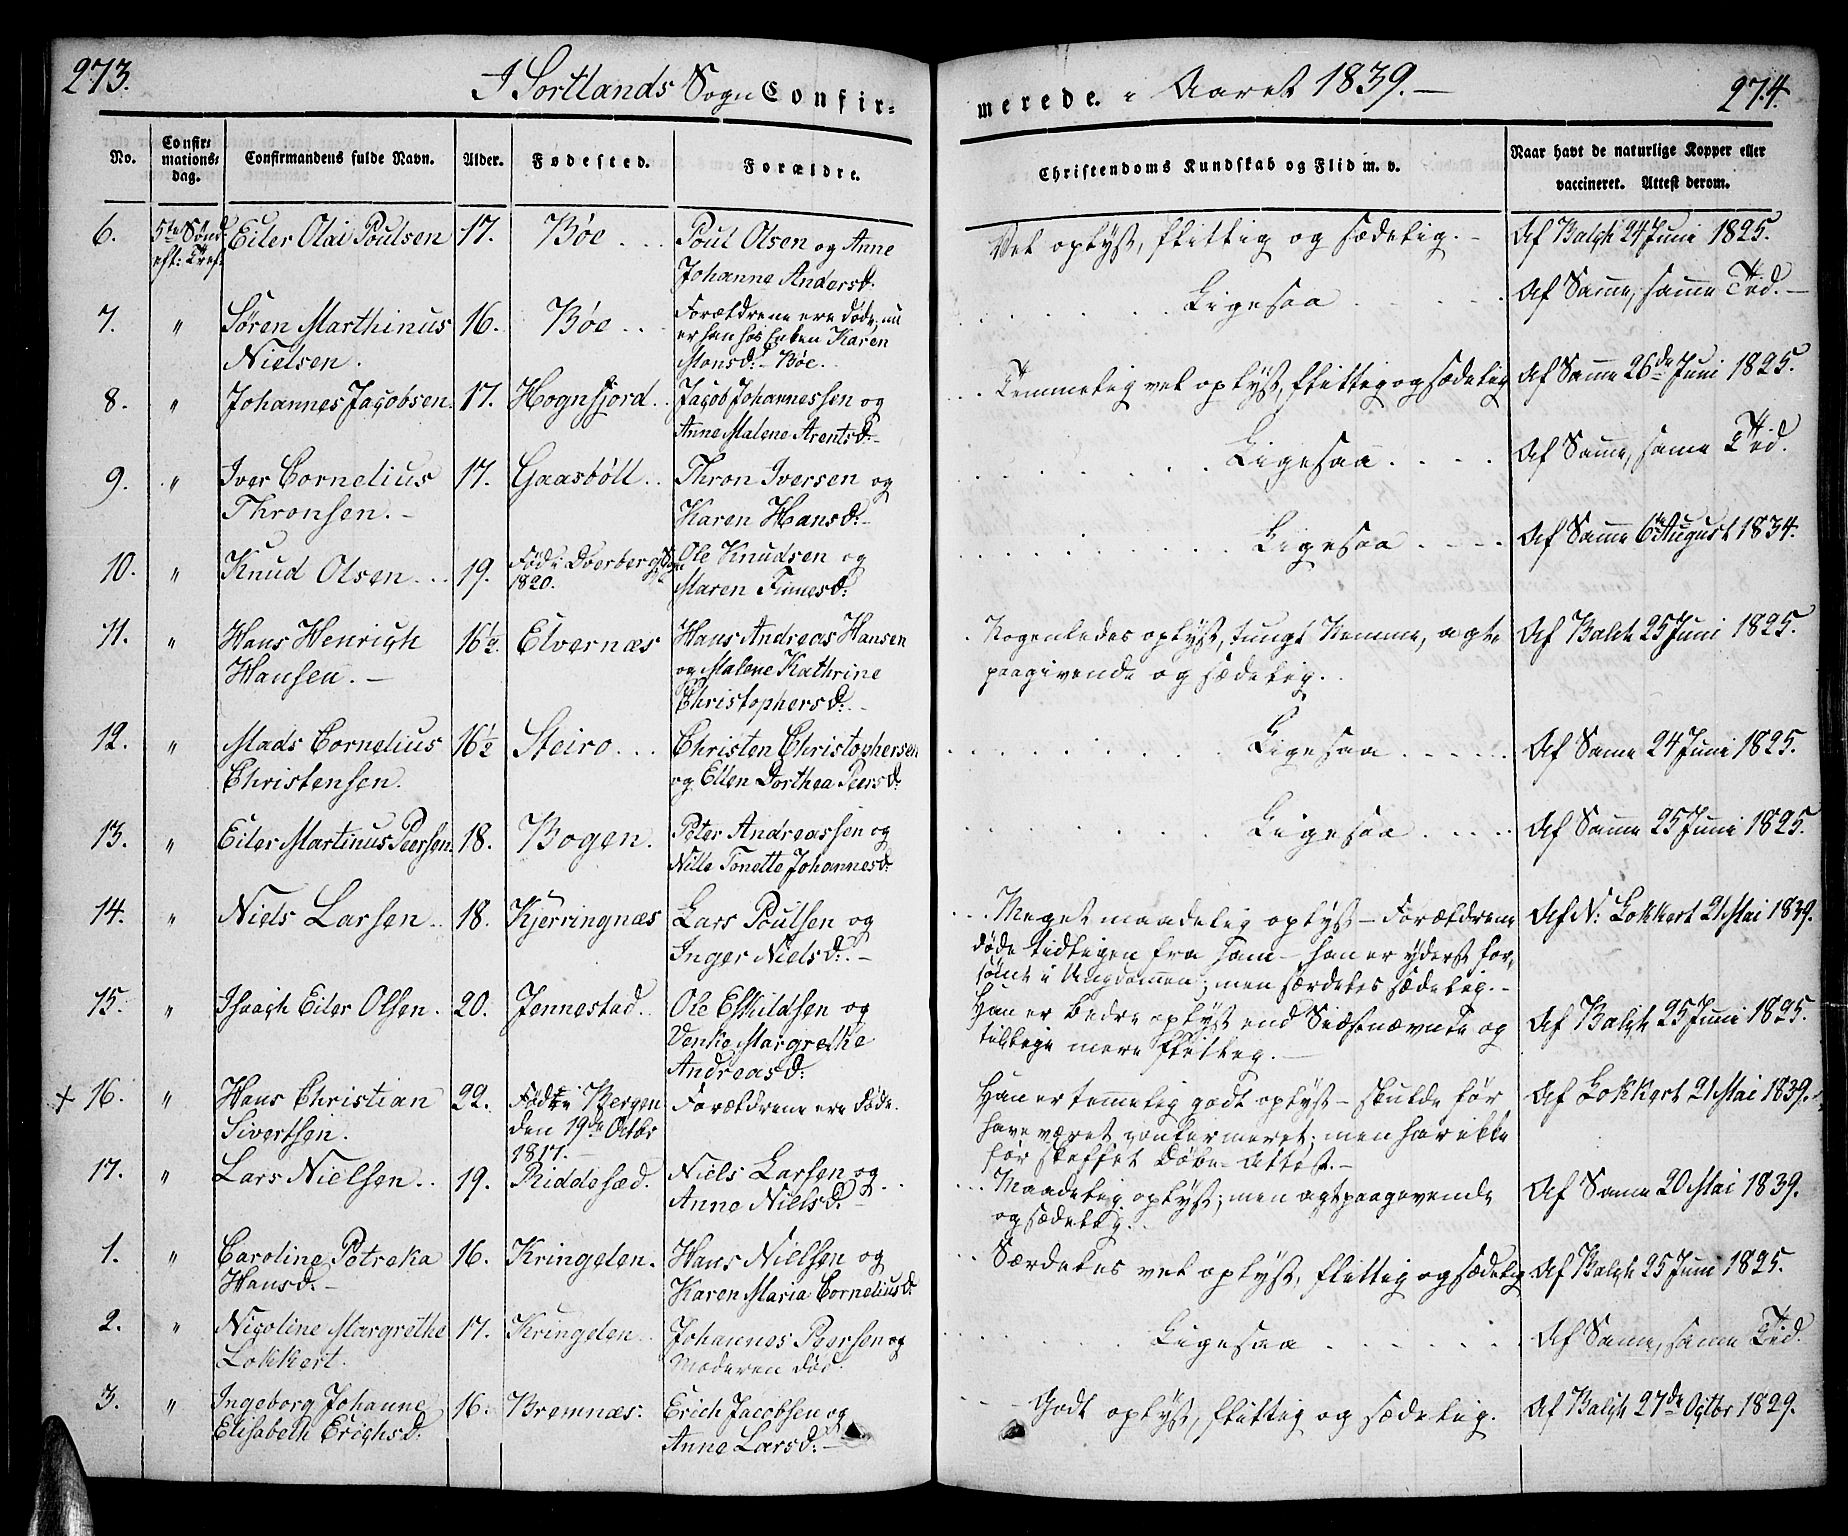 273.
I Sortlands Sogn Confir-
merede. i Aaret 1839.-
274.
No.
Confir-
mations-
dag.
Confirmandens fulde Navn.
Alder.
Fødested.
Forældre.
Christendoms Kundskab og Flid m. v.
Naar havt de naturlige Kopper eller
vaccineret. Attest derom.
6. 5te Sønd. Eiler Olai Poulsen 17. Bøe . . . Poul Olsen og Anne Vel oplyst, flittig og sædelig.- Af Balch 24 Juni 1825.
eft: Tref:
Johanne Andersd.
7. " Søren Marthinus 16. Bøe . . Forældrene ere døde, nu Ligesaa Af Samme, samme Tid.-
Nielsen. er han hos Enken Karen
Monsd:- Bøe.
8. " Johannes Jacobsen. 17. Hognfjord . . Jacob Johannessen og Temmelig vel oplyst, flittig og sædelig Af Samme 26de Juni 1825.
Anne Malene Arentsd:-
9. " Iver Cornelius 17. Gaasböll . . Thron Iversen og Ligesaa Af Samme, samme Tid.
Thronsen.- Karen Hansd:-
10. " Knud Olsen . . . 19. Fød i Dverberg Sogn Ole Knudsen og Ligesaa Af Samme 6te August 1834.
1820. Maren Finnesd:
11. " Hans Henrich 16½. Elvernæs Hans Andreas Hansen Nogenledes oplyst, tungt Nemme, agt- Af Balch 25 Juni 1825.
Hansen.- og Malene Kathrine paagivende og sædelig.
Christophersd:
12. " Mads Cornelius 16½ Steiro . . . Christen Christophersen Ligesaa Af Samme 24 Juni 1825.
Christensen. og Ellen Dorthea Peersd:
13. " Eiler Martinus Peersen. 18. Bogen. Peter Andreassen og Ligesaa Af Samme 25 Juni 1825.
Nille Tonette Johannesd:
14. " Niels Larsen . . 18. Kjerringnæs Lars Poulsen og Meget maadelig oplyst - Forældrene Af N: Lokkert 21 Mai 1839.
Inger Nielsd:- døde tidligen fra ham - han er yderst for-
sømt i Ungdommen; men særdeles sædelig.-
15. " Isaach Eiler Olsen. 20. Jennestad. Ole Eskildsen og Han er bedre oplyst end Sidstnævnte og Af Balch 25 Juni 1825.
Venke Margrethe tillige mere flittig.-
Andreasd:
+ 16. " Hans Christian 22. Født i Bergen Forældrene ere døde. Han er temmelig godt oplyst - skulde før Af Lokkert 21 Mai 1839.
Sivertsen. den 19de Octbr have været confirmeret; men har ikke
1817.- før skaffet Døbe-Attest.-
17. " Lars Nielsen . . 19. Riddesæd. Niels Larsen og Maadelig oplyst; men agtpaagivende Af Samme 20 Mai 1839.
Anne Nielsd:- og sædelig.
1. " Caroline Petreka 16. Kringelen. Hans Nielsen og Særdeles vel oplyst, flittig og sædelig Af Balch 25 Juni 1825.
Hansd.- Karen Maria Corneliusd:
2. " Nicoline Margrethe 17. Kringelen . . Johannes Peersen og Ligesaa Af Samme, samme Tid.
Lokkert. Moderen død.
3. " Ingeborg Johanne 16. Bremnæs. Erich Jacobsen og Godt oplyst, flittig og sædelig. Af Balch 27de Octbr 1829.
Elisabeth Erichsd. Anne Larsd:-